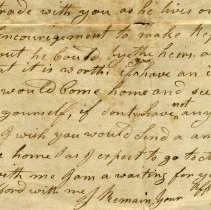 trade with you as he lives on
encouragement to make Re
but he could bye the heirs o
at it is worth I have an i
would come home and se
yourself, if dont have not any
I wish you would send a an
home as I expect to go to
with me I am a waiting for y
ford with me I Remain your